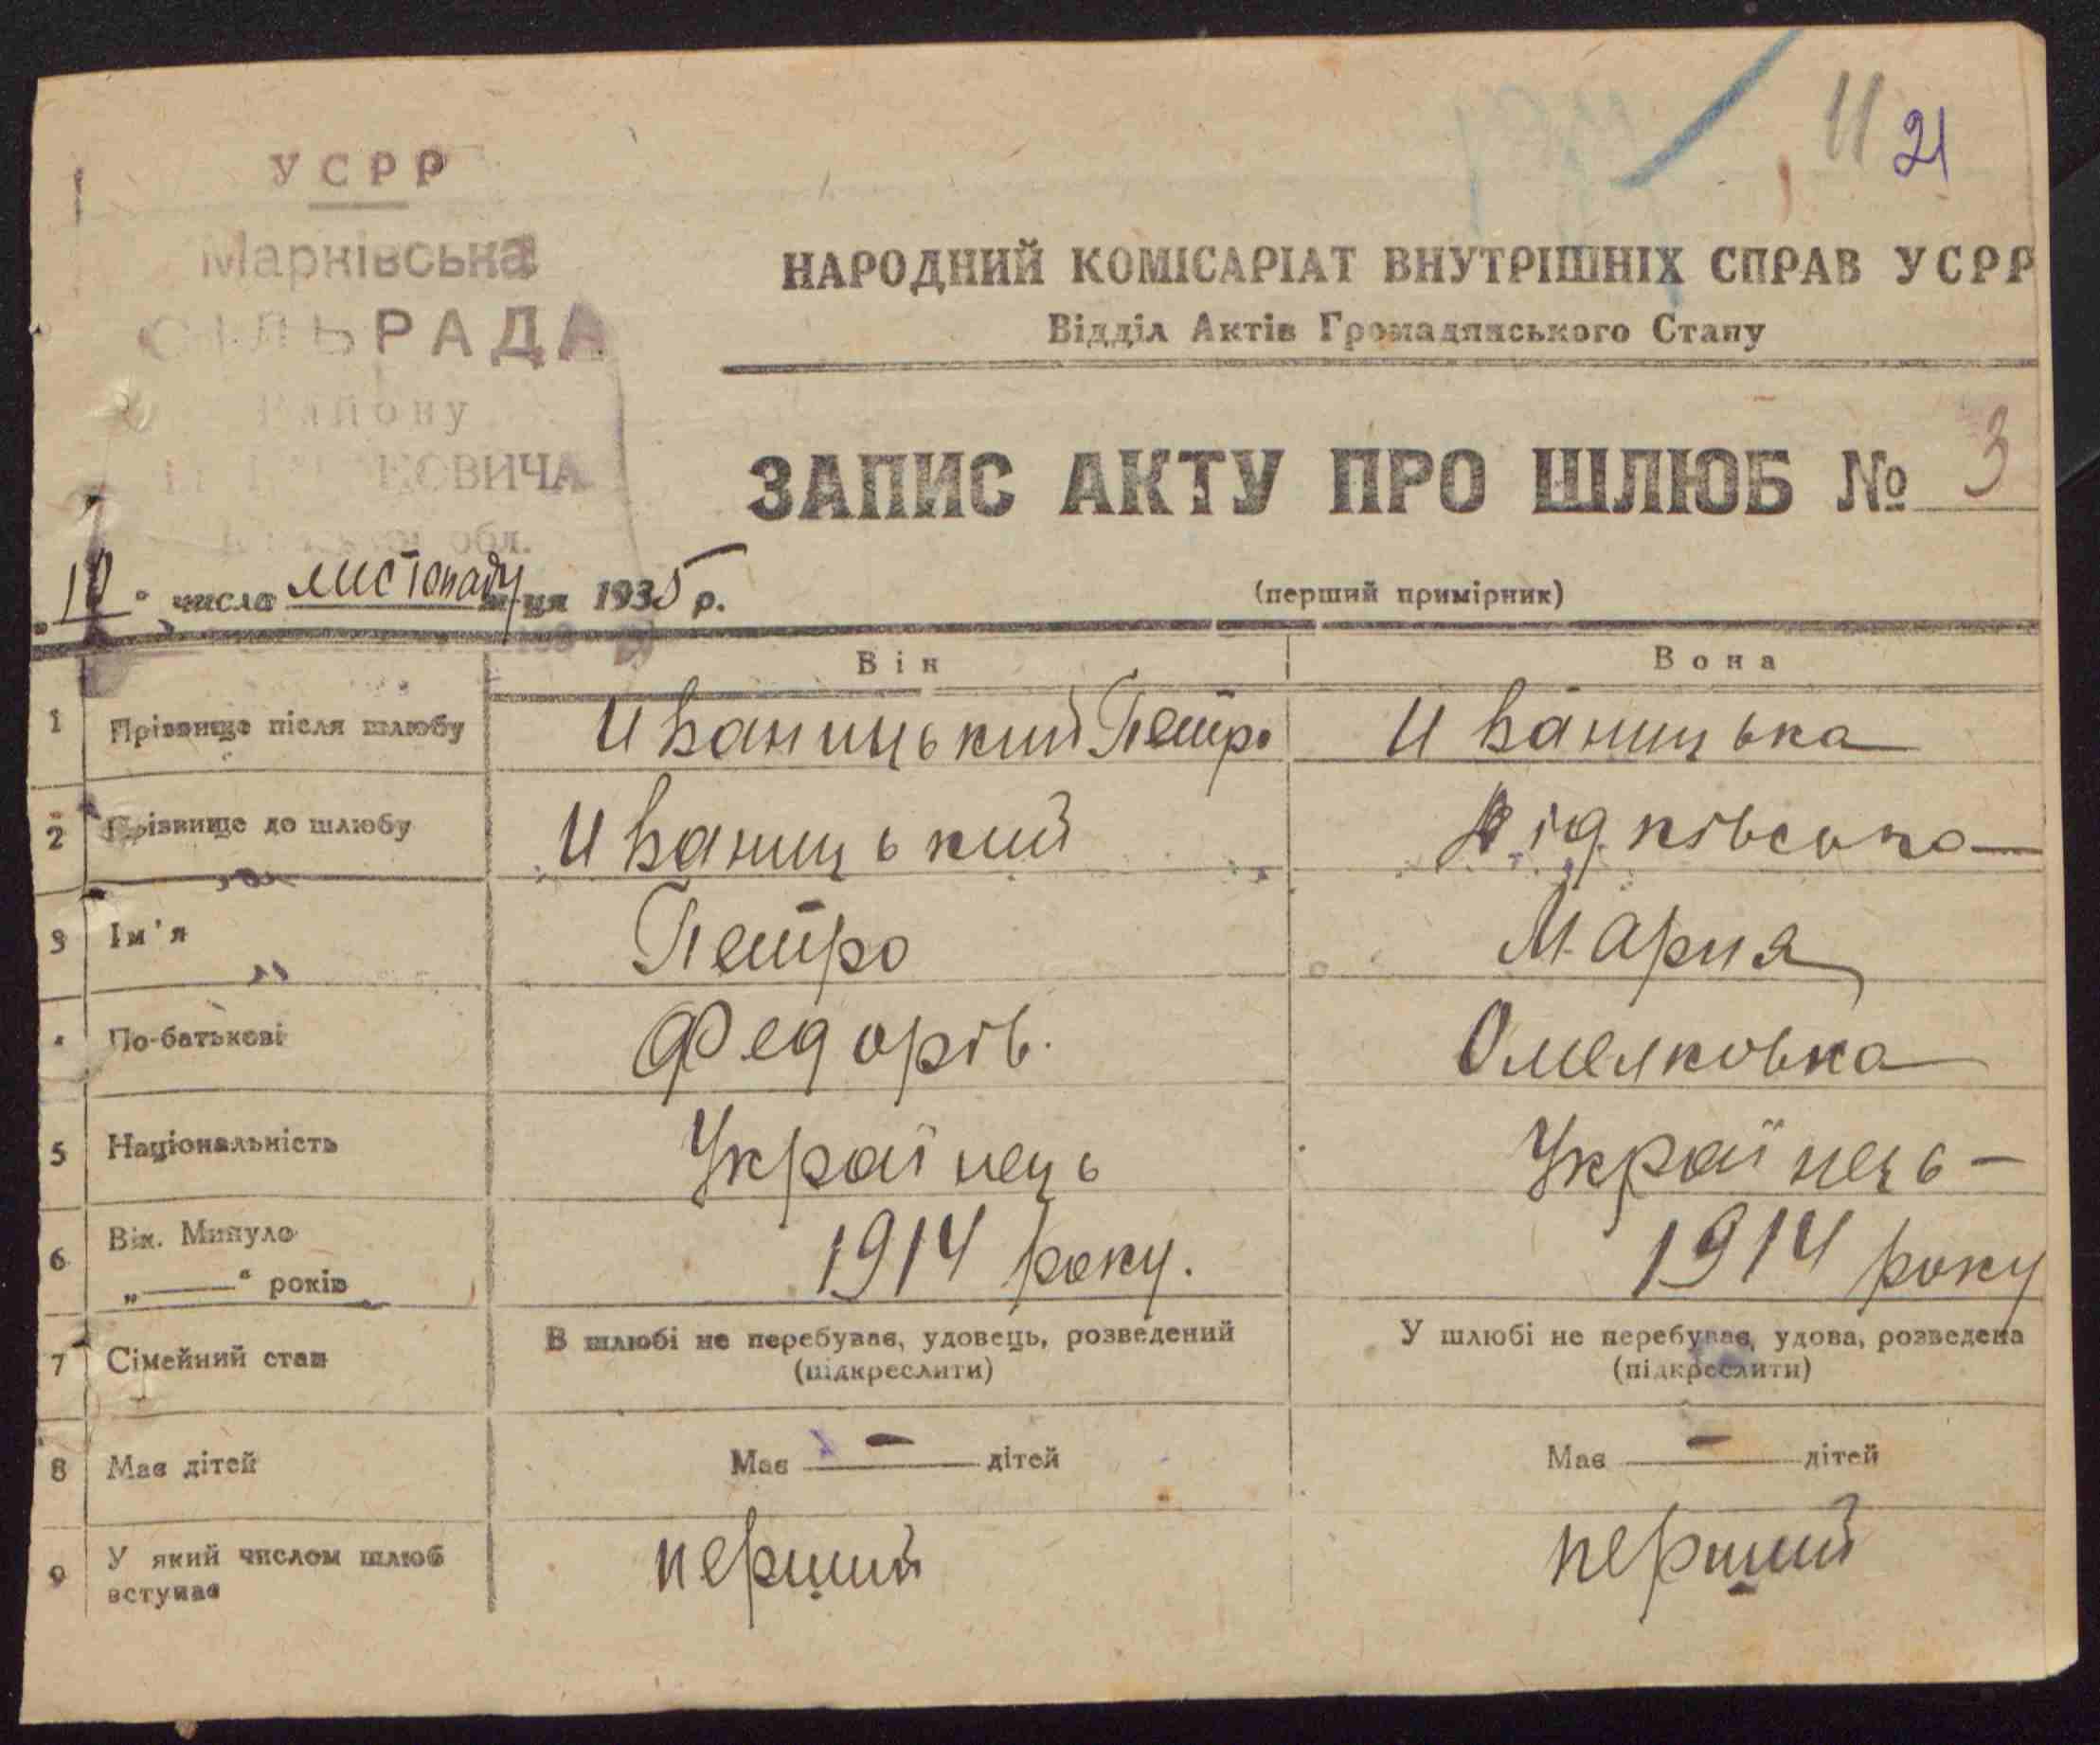 11 21
УСРР
Марківська
СІЛЬРАДА
Району
обл.
НАРОДНИЙ КОМІСАРІАТ ВНУТРІШНІХ СПРАВ УСРР
Відділ Актів Громадянського Стану
ЗАПИС АКТУ ПРО ШЛЮБ № 3
„10“ числа листопаду м-ця 1935 р.
(перший примірник)
Він Вона
1 Прізвище після шлюбу Иваницький Петро Иваницька
2 Прізвище до шлюбу Иваницький
3 Ім'я Петро Мария
По-батькові Федорів. Омелковька
5 Національність Українець Українець –
6 Вік. Минуло 1914 року. 1914 року
„——“ років
7 Сімейний стан В шлюбі не перебував, удовець, розведений У шлюбі не перебував, удова, розведена
(підкреслити) (підкреслити)
8 Має дітей Має — дітей Має — дітей
9 У який числом шлюб перший перший
вступає